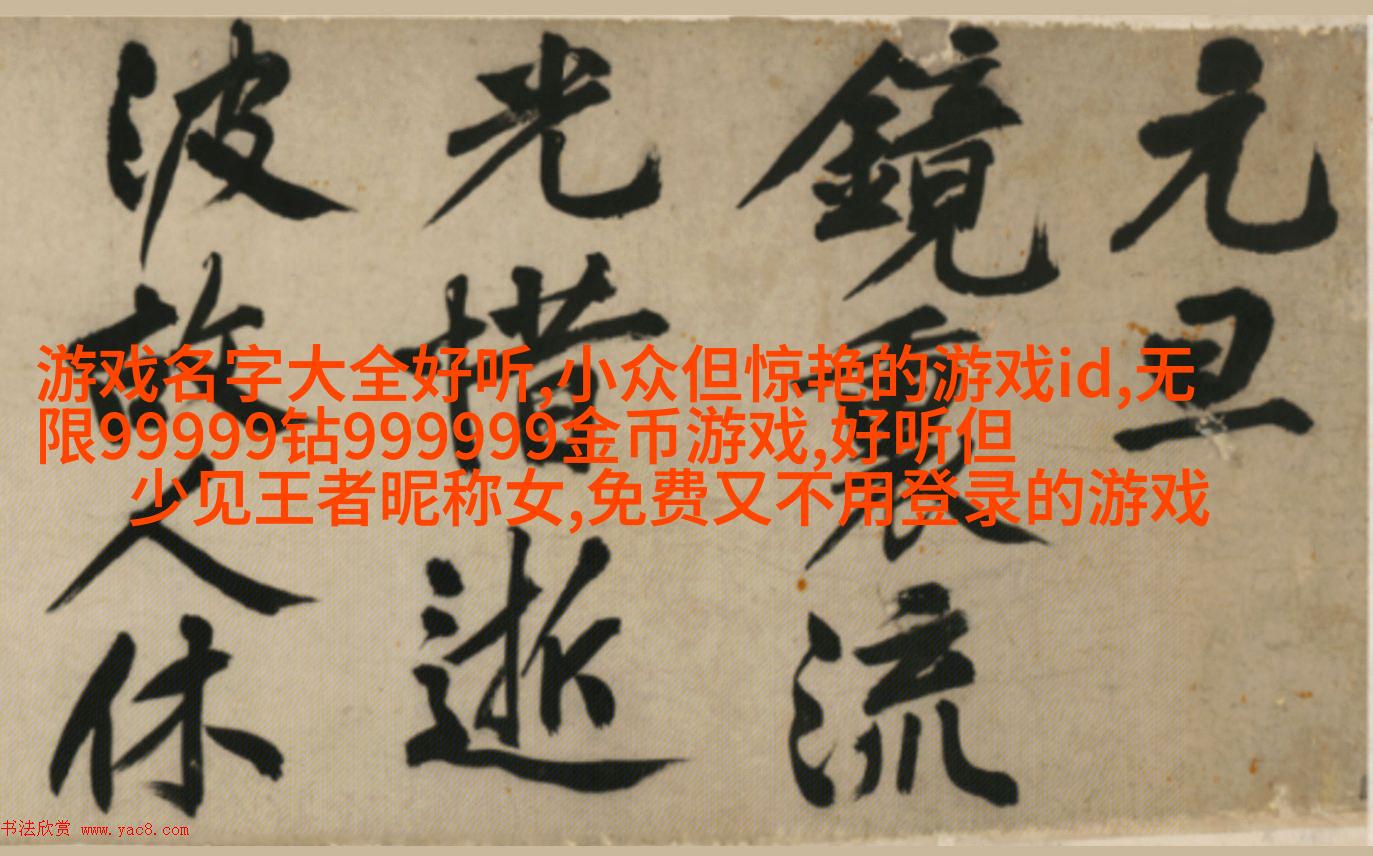 元旦
鏡裏流
光惜逝
波故人休
游戏名字大全好听,小众但惊艳的游戏id,无
限99999钻999999金币游戏,好听但
少见王者昵称女,免费又不用登录的游戏
书法欣赏 www.yac8.com